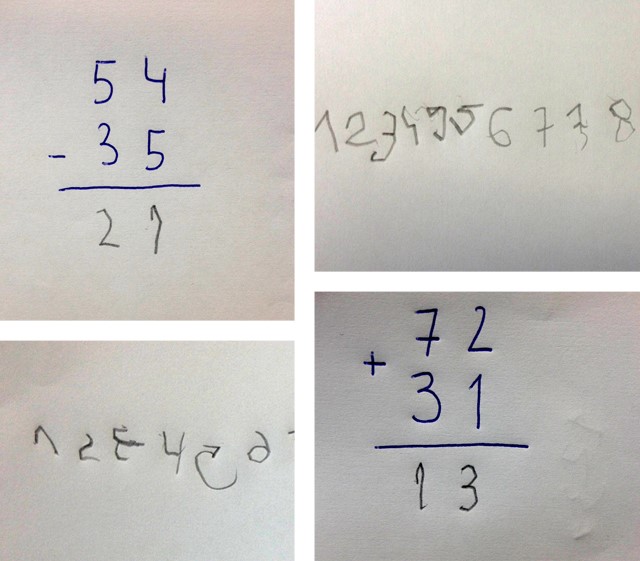 54
- 35
21
1 2 3 4 5 6 7 7 8
1 2 4
+ 72
31
13